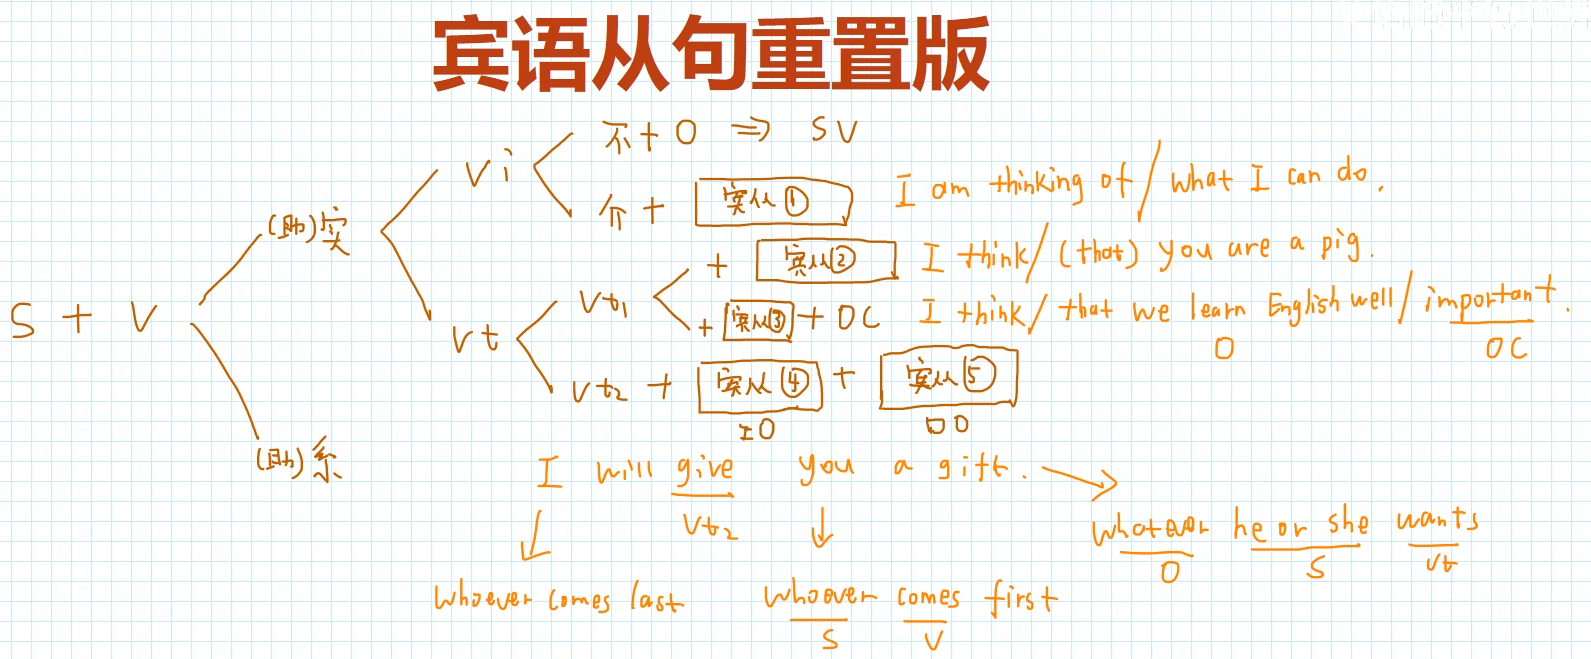 宾语从句重置版
不+O ⇒ SV
vi
介+ 宾从① I am thinking of / what I can do.
(助)实
+ 宾从② I think / (that) you are a pig.
S + V
vt
vt₁
+ 宾从③ + OC I think / that we learn English well / important.
O OC
vt₂ + 宾从④ + 宾从⑤
IO DO
(助)系
I will give you a gift.
vt₂
whatever he or she wants
O S vt
whoever comes last whoever comes first
S V